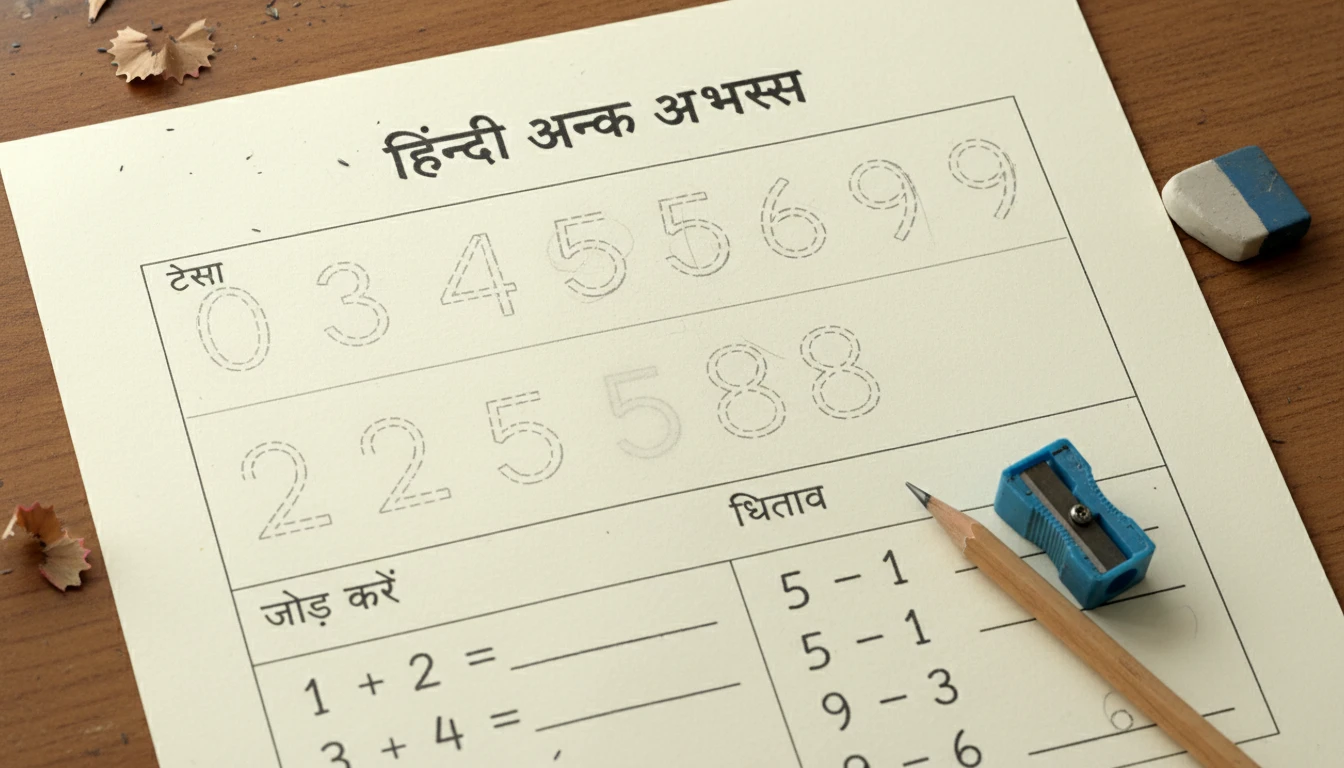 हिंन्दी अन्क अभस्स
टेसा
0 3 4 5 5 6 9 9
2 2 5 5 8 8
धिताव
जोड़ करें
1 + 2 =
3 + 4 =
5 – 1
5 – 1
9 – 3
9 – 6
6